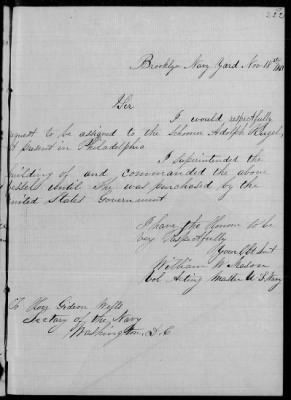 222
Brooklyn Navy Yard Nov 18th
Sir
I would respectfully
request to be assigned to the Schooner Adolph Hugel,
at present in Philadelphia
I Superintended the
building of and commanded the above
vessels until she was purchased by the
United States Government
I have the Honor to be
very Respectfully
Your Obt Servt
William W
Acting Master U S Navy
To Hon Gideon Wells
Sectary of the Navy
Washington, D. C